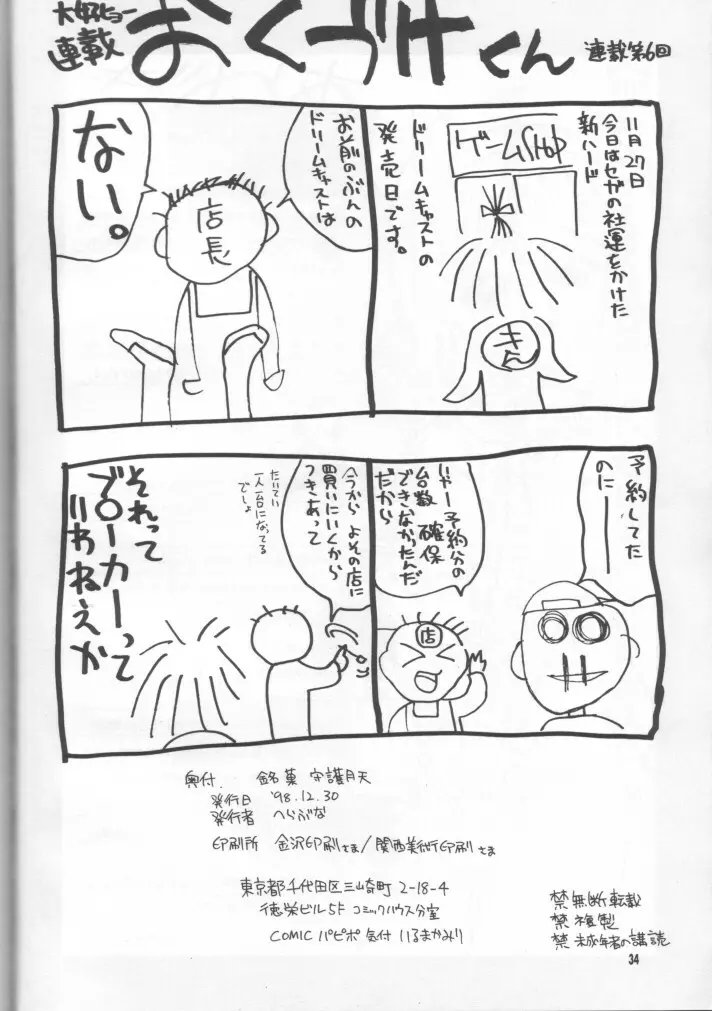 大好ヒョー
連載
おくづけくん
連載第6回
11月27日
今日はセガの社運をかけた
新ハード
ドリームキャストの
発売日です。
ゲームSHOP
きん
お前のぶんの
ドリームキャストは
ない。
店長
予約してた
のにー
いやー予約分の
台数確保
できなかったんだ
だから
店
今から よその店に
買いにいくから
つきあって
たいてい
一人一台になってる
でしょ
それって
ブローカーって
いわねえか
奥付. 銘菓 守護月天
発行日 '98.12.30
発行者 へらぶな
印刷所 金沢印刷さま/関西美術印刷さま
東京都千代田区三崎町 2-18-4
徳栄ビル5F コミックハウス分室
COMIC パピポ 気付 いるまかみり
禁 無断転載
禁 複製
禁 未成年者の講読
34